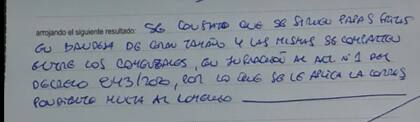 arrojando el siguiente resultado: SE CONSTATO QUE SE SIRVEN PAPAS FRITAS
EN BANDEJA DE GRAN TAMAÑO Y LAS MISMAS SE COMPARTEN
ENTRE LOS COMENSALES, EN INFRACCION AL ART N°1 DEL
DECRETO 843/2020, POR LO QUE SE LE APLICA LA CORRES
PONDIENTE MULTA AL COMERCIO